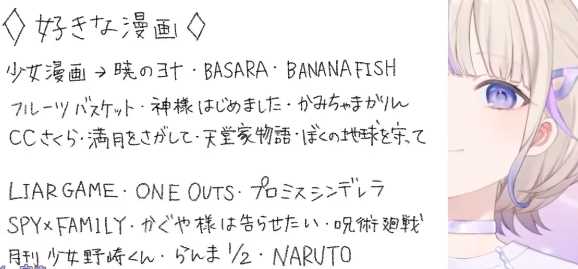 ◇ 好きな漫画 ◇
少女漫画→暁のヨナ・BASARA・BANANA FISH
フルーツバスケット・神様はじめました・かみちゃまかりん
CCさくら・満月をさがして・天堂家物語・ぼくの地球を守って
LIAR GAME・ONE OUTS・プロミスシンデレラ
SPY×FAMILY・かぐや様は告らせたい・呪術廻戦
月刊少女野崎くん・らんま1/2・NARUTO